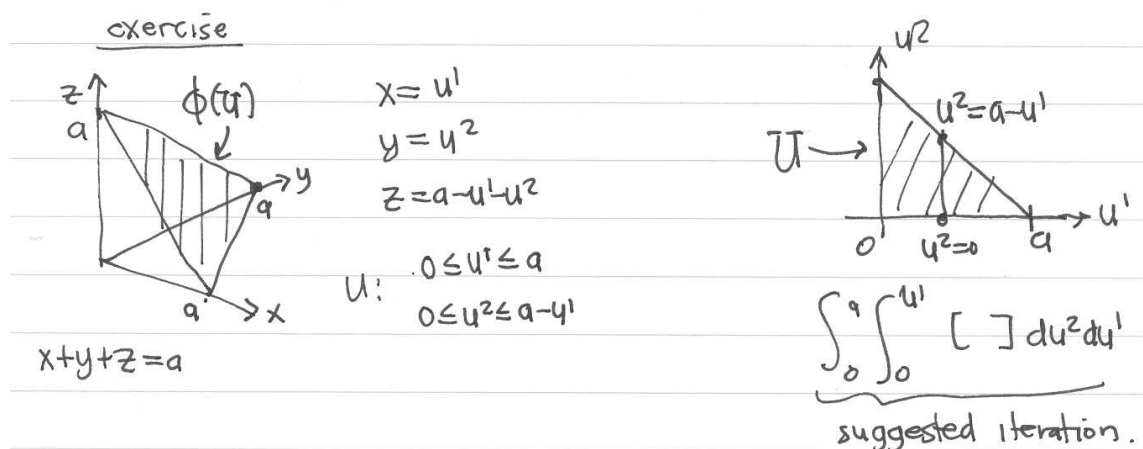 exercise
z
a
ϕ(U)
y
a
a
x
x+y+z=a
x = u¹
y = u²
z = a-u¹-u²
U: 0 ≤ u¹ ≤ a
0 ≤ u² ≤ a-u¹
u²
u² = a-u¹
U →
0
u²=0
a
u¹
∫₀ᵃ ∫₀^{u¹} [ ] du² du¹
suggested iteration.